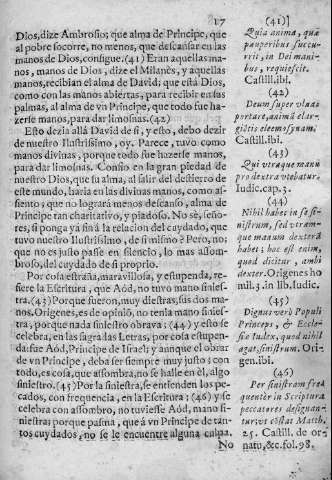 17
Dios, dize Ambrosio; que alma de Principe, que
al pobre socorre, no menos, que descansar en las
manos de Dios, consigue. (41) Eran aquellas ma-
nos, manos de Dios, dize el Milanès, y aquellas
manos, recibian el alma de David; que està Dios,
como con las manos abiertas, para recibir en sus
palmas, al alma de vn Principe, que todo fue ha-
zerse manos, para dar limosnas. (42)
Esto dezia allà David de si, y esto, debo dezir
de nuestro Ilustrissimo, oy. Parece, tuvo como
manos divinas, porque todo fue hazerse manos,
para dar limosnas. Confio en la gran piedad de
nuestro Dios, que su alma, al salir del destierro de
este mundo, haria en las divinas manos, como as-
siento, que no logrará menos descanso, alma de
Principe tan charitativo, y piadoso. No sè, seño-
res, si ponga yà fin à la relacion del cuydado, que
tuvo nuestro Ilustrissimo, de si mismo? Pero, no;
que no es justo passe en silencio, lo mas assom-
broso, del cuydado de si proprio.
Por cosa estraña, maravillosa, y estupenda, re-
fiere la Escritura, que Aód, no tuvo mano sinies-
tra. (43) Porque fueron, muy diestras, sus dos ma-
nos. Origenes, es de opiniõ, no tenia mano sinies-
tra, porque nada siniestro obrava: (44) y esto se
celebra, en las sagradas Letras, por cosa estupen-
da: fue Aód, Principe de Israel; y aunque el obrar
de vn Principe, deba ser siempre muy justo; con
todo, es cosa, que assombra, no se halle en èl, algo
siniestro. (45) Por la siniestra, se entienden los pe-
cados, con frequencia, en la Escritura: (46) y se
celebra con assombro, no tuviesse Aód, mano si-
niestra: porque pasma, que à vn Principe de tan-
tos cuydados, no se le encuentre alguna culpa.
No
(41)
Quia anima, quæ
pauperibus succu-
rrit, in Dei mani-
bus, requiescit.
Castill. ibi.
(42)
Deum super vlnas
portare, animã elar-
gitoris eleemosynam.
Castill. ibi.
(43)
Qui vtraque manu
pro dextra vtebatur.
Iudic. cap. 3.
(44)
Nihil habet in se si-
nistrum, sed vtram-
que manum dexterã
habet: hoc est enim,
quod dicitur, ambi
dexter. Origenes ho
mil. 3. in lib. Iudic.
(45)
Dignus verè Populi
Princeps, & Eccle-
siæ Iudex, quod nihil
agat, sinistrum. Ori-
gen. ibi.
(46)
Per sinistram fre-
quenter in Scriptura
peccatores designan-
tur, vt cõstat Matth.
25. Castill. de or-
natu, &c. fol. 98.